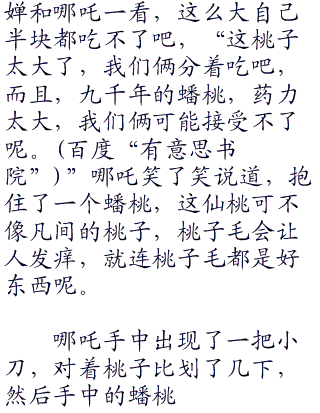 婵和哪吒一看，这么大自己
半块都吃不了吧，“这桃子
太大了，我们俩分着吃吧，
而且，九千年的蟠桃，药力
太大，我们俩可能接受不了
呢。(百度“有意思书
院”)”哪吒笑了笑说道，抱
住了一个蟠桃，这仙桃可不
像凡间的桃子，桃子毛会让
人发痒，就连桃子毛都是好
东西呢。
哪吒手中出现了一把小
刀，对着桃子比划了几下，
然后手中的蟠桃